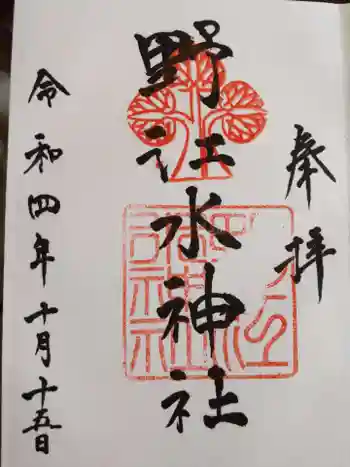 奉拝
野江水神社
令和四年十月十五日